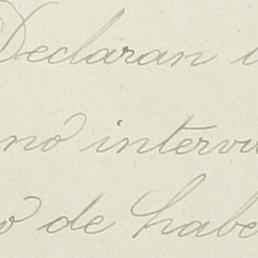 Declaran
no interv
o de habe